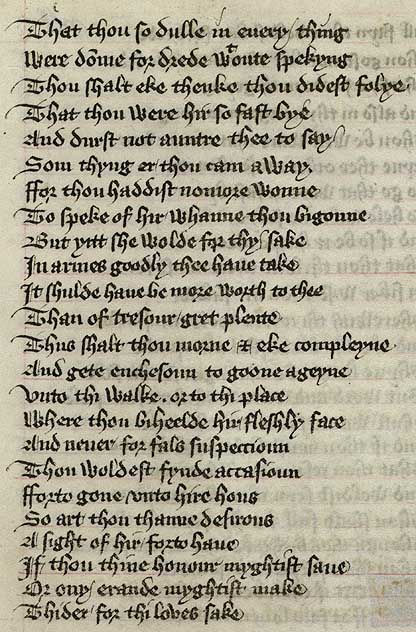 That thou so dulle in euery / thing
Were dome for drede wtoute spekyng
Thou shalt eke thenke thou didest folye
That thou were hir so fast bye
And durst not auntre thee to say /
Som thyng er thou cam away.
ffor thou haddist nomore wonne
To speke of hir whanne thou bigonne
But yitt she wolde for thy / sake
In armes goodly thee haue take
It shulde haue be more worth to thee
Than of tresour / gret plente
Thus shalt thou morne & eke compleyne
And gete enchesoun to goone ageyne
vnto thi walke . or to thi place
Where thou biheelde hir / fleshly face
And neuer for fals suspeccioun
Thou woldest fynde accasioun
fforto gone / vnto hire hous
So art thou thanne desirous
A sight of hir / forto haue
If thou thine honour myghtist saue
Or ony / erande myghtist make
Thider / for thi loves sake